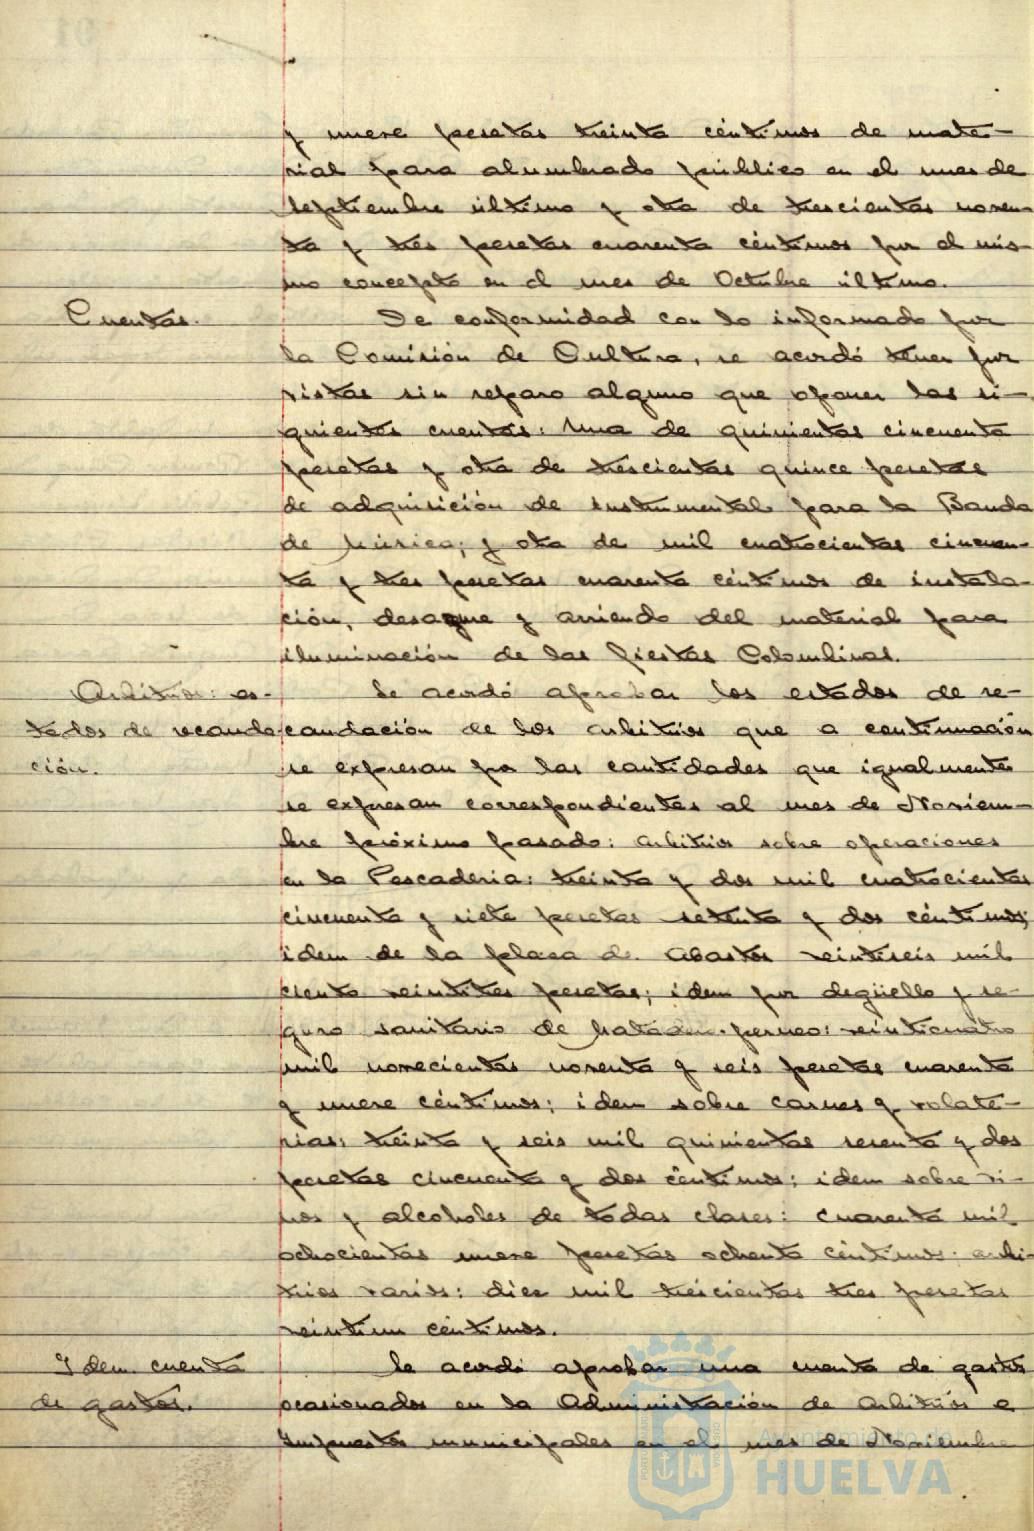 y nueve pesetas treinta céntimos de mate-
rial para alumbrado público en el mes de
Septiembre último y otra de trescientas noven-
ta y tres pesetas cuarenta céntimos por el mis-
mo concepto en el mes de Octubre último.
Cuentas. De conformidad con lo informado por
la Comisión de Cultura, se acordó tener por
vistas sin reparo alguno que oponer las si-
guientes cuentas: Una de quinientas cincuenta
pesetas y otra de trescientas quince pesetas
de adquisición de instrumental para la Banda
de Música; y otra de mil cuatrocientas cincuen-
ta y tres pesetas cuarenta céntimos de instala-
ción, desague y arriendo del material para
iluminación de las fiestas Colombinas.
Arbitrios: es- Se acordó aprobar los estados de re-
tados de recauda- caudación de los arbitrios que a continuación
ción. se expresan por las cantidades que igualmente
se expresan correspondientes al mes de Noviem-
bre próximo pasado: arbitrios sobre operaciones
en la Pescaderia: treinta y dos mil cuatrocientas
cincuenta y siete pesetas setenta y dos céntimos;
idem de la plaza de Abastos veintiseis mil
ciento veintitres pesetas; idem por degüello y se-
guro sanitario de Matadero perneo: veinticuatro
mil novecientas noventa y seis pesetas cuarenta
y nueve céntimos; idem sobre carnes y volate-
rias: treinta y seis mil quinientas sesenta y dos
pesetas cincuenta y dos céntimos; idem sobre vi-
nos y alcoholes de todas clases: cuarenta mil
ochocientas nueve pesetas ochenta céntimos: arbi-
trios varios: diez mil trescientas tres pesetas
veintiun céntimos.
Idem. cuenta Se acordó aprobar una cuenta de gastos
de gastos. ocasionados en la Administración de Arbitrios e
Impuestos municipales en el mes de Noviembre
Ayuntamiento de
HUELVA